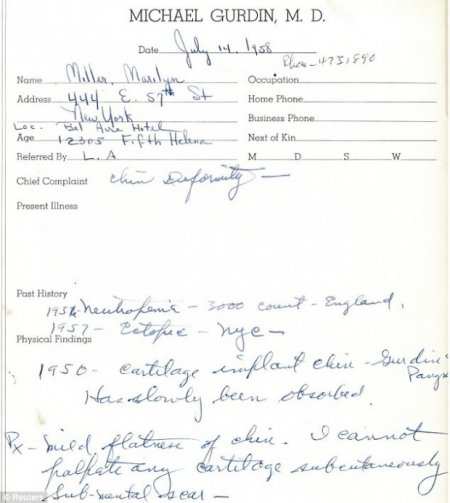 MICHAEL GURDIN, M. D.
Date July 14, 1958
Phone - 4731890
Name Miller, Marilyn Occupation
Address 444 E. 57th St Home Phone
New York Business Phone
Loc. Bel Aire Hotel
Age 12305 Fifth Helena Next of Kin
Referred By L. A M D S W
Chief Complaint Chin Deformity —
Present Illness
Past History
1956 Neutropenia - 3000 count - England.
1957 - Ectopic - NYC -
Physical Findings
1950 - cartilage implant chin - Gurdin
Has slowly been absorbed.
Px - mild flatness of chin. I cannot
palpate any cartilage subcutaneously
Sub-mental scar -
© Reuters